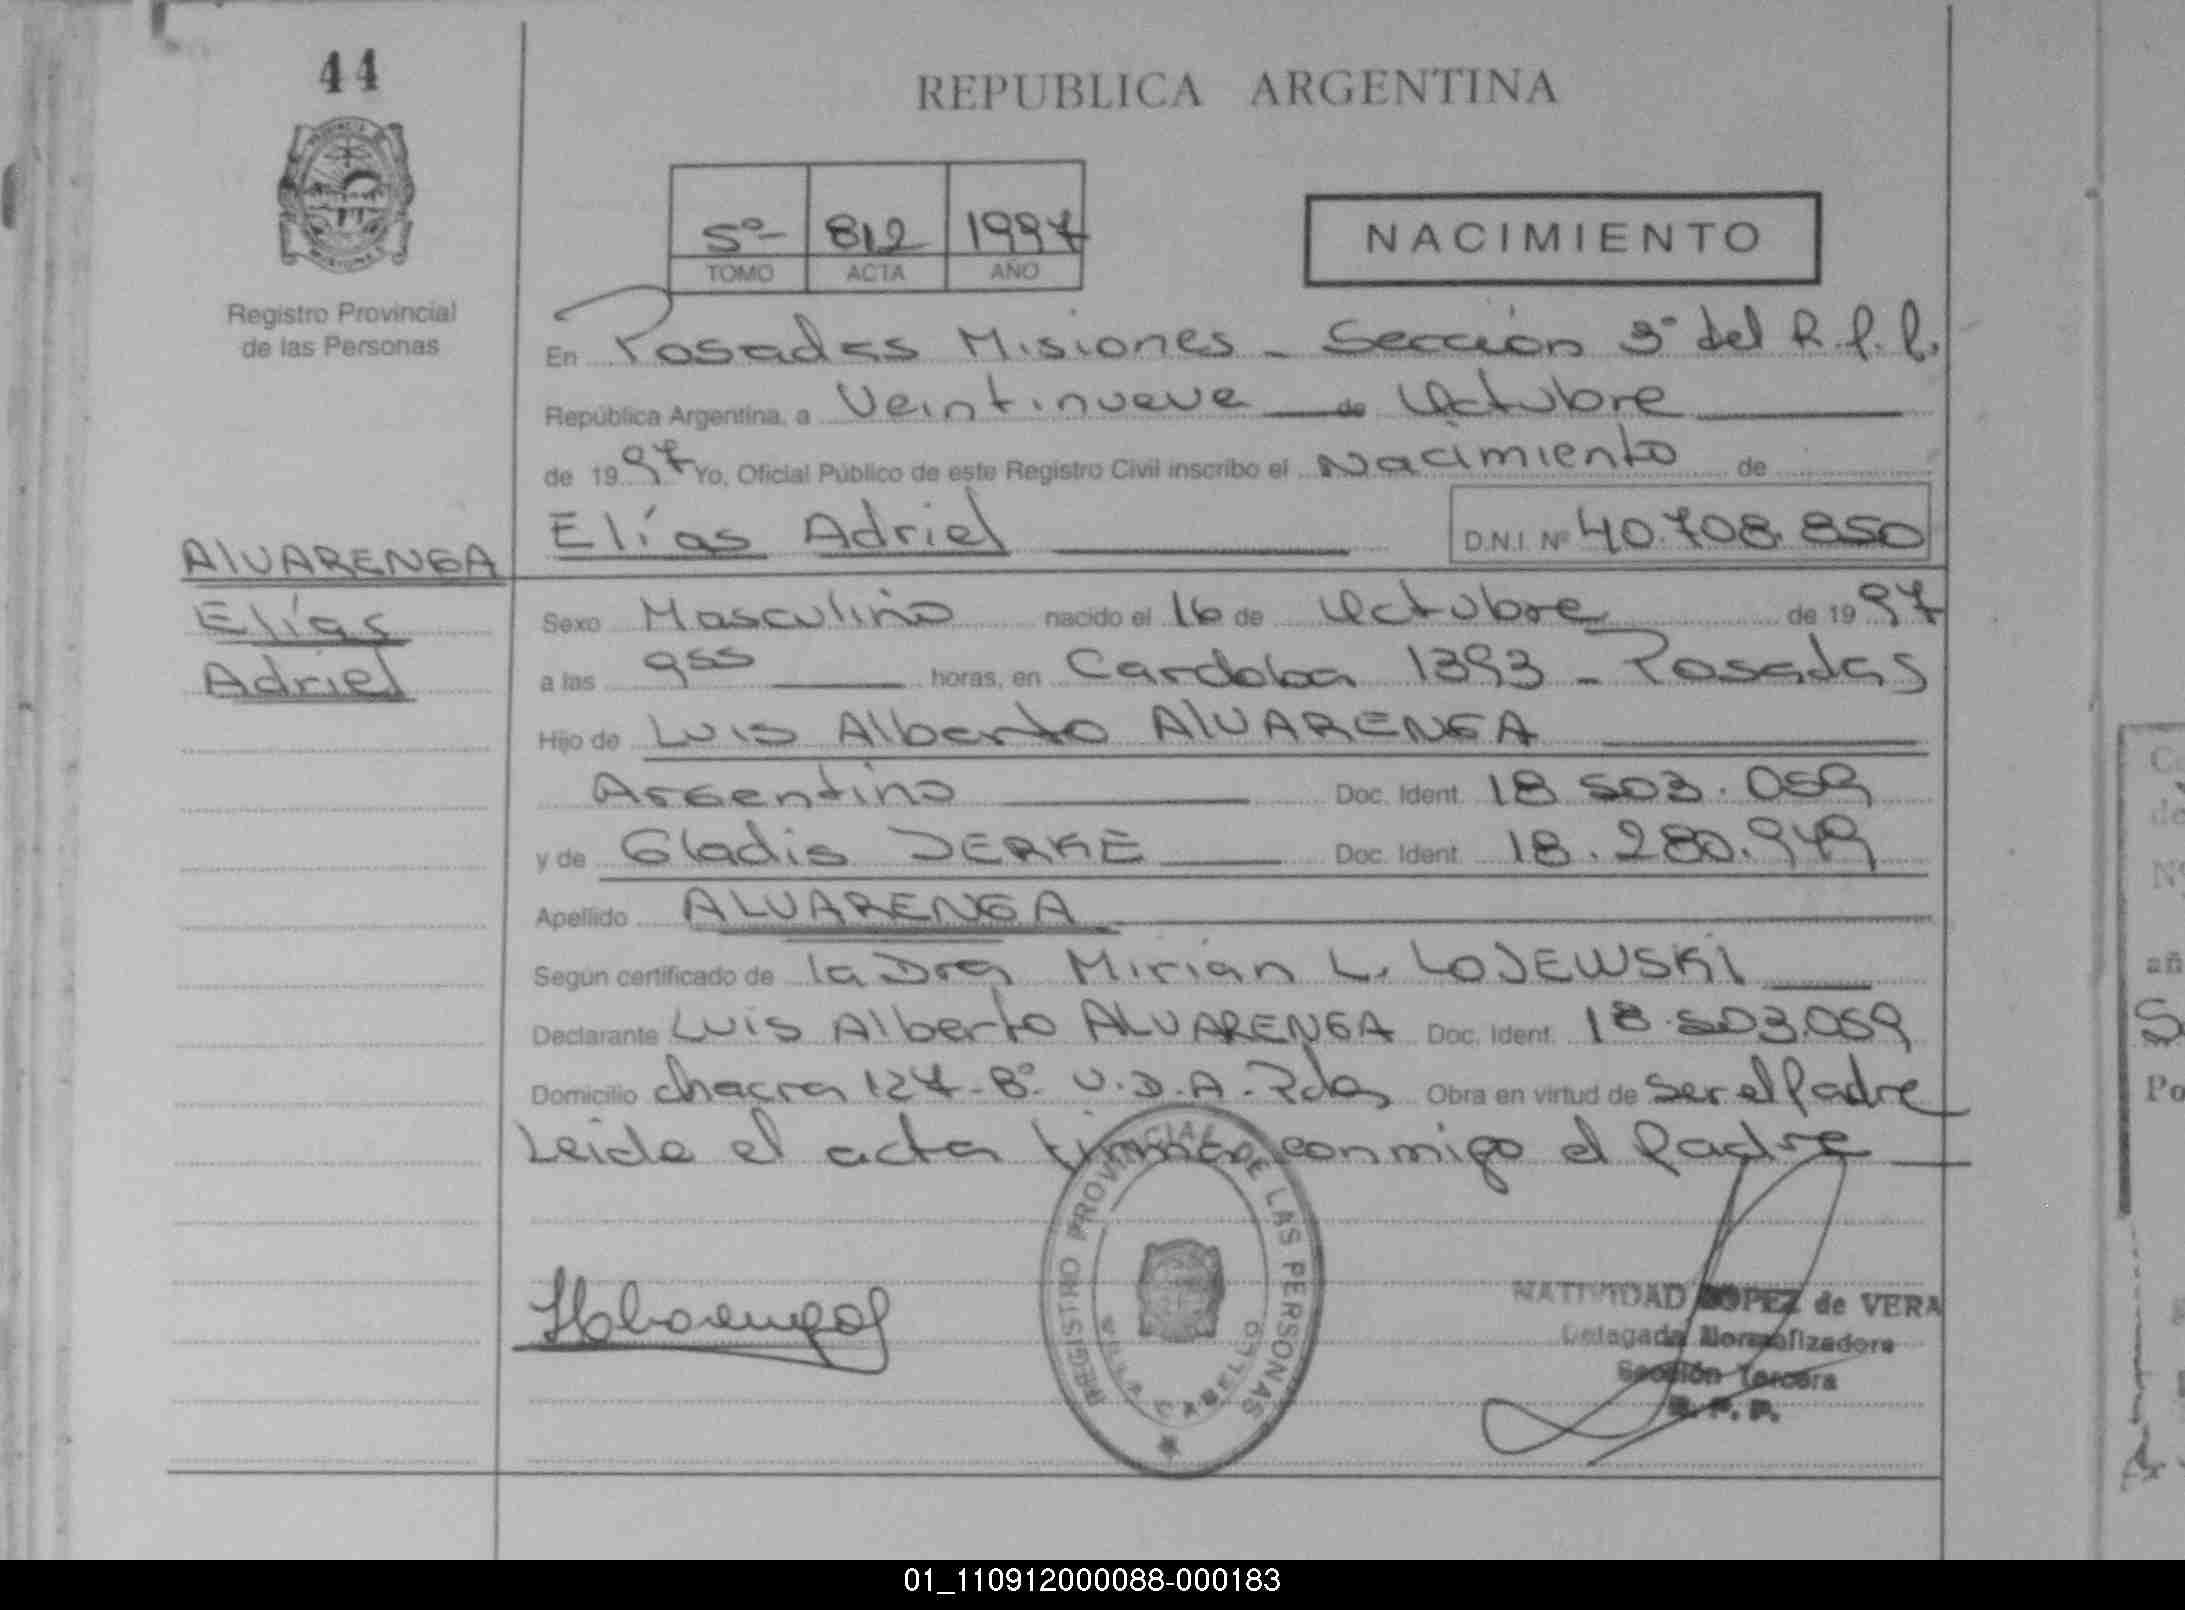 44
REPUBLICA ARGENTINA
5º 812 1997
TOMO ACTA AÑO
NACIMIENTO
Registro Provincial
de las Personas
En Posadas Misiones - Sección 3º del R.P.P.
República Argentina, a Veintinueve de Octubre
de 1997 Yo, Oficial Público de este Registro Civil inscribo el Nacimiento de
Elías Adriel D.N.I. Nº 40.708.850
ALVARENGA
Elías
Adriel
Sexo Masculino nacido el 16 de Octubre de 1997
a las 9:55 horas, en Cardoba 1393 - Posadas
Hijo de Luis Alberto ALVARENGA
Argentino Doc. Ident. 18.503.059
y de Gladis JERKE Doc. Ident. 18.280.949
Apellido ALVARENGA
Según certificado de la Dra Mirian L. LOJEWSKI
Declarante Luis Alberto ALVARENGA Doc. Ident. 18.503.059
Domicilio chacra 127 - Bº U.D.A. - Pdas Obra en virtud de ser el Padre
Leida el acta firma conmigo el Padre
REGISTRO PROVINCIAL DE LAS PERSONAS
VILLA CABELLO
NATIVIDAD LOPEZ de VERA
Delegada Normalizadora
Sección Tercera
R. P. P.
01_110912000088-000183